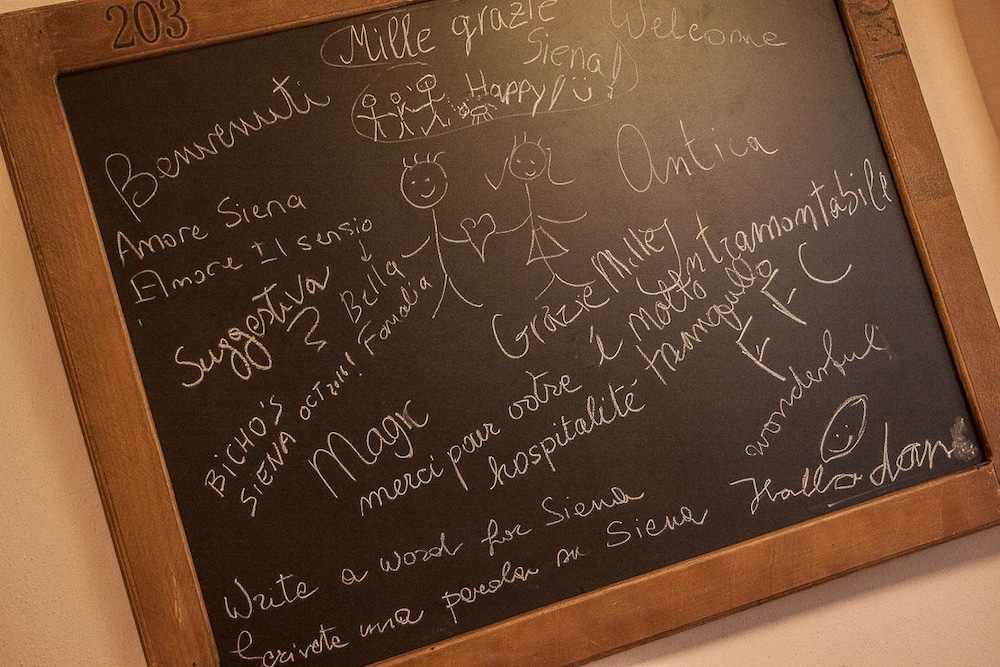 203
Mille grazie
Siena!
Welcome
Happy!
Benvenuti
Antica
Amore Siena
Amore Il sensio
Suggestiva
Bella
Famolia
Grazie Mille
Intramontabile
è molto
tranquillo
F F C
BICHO'S
SIENA OCT 2016!
Magic
merci pour votre
hospitalité
wonderful
Write a word for Siena
Scrivete una parola su Siena